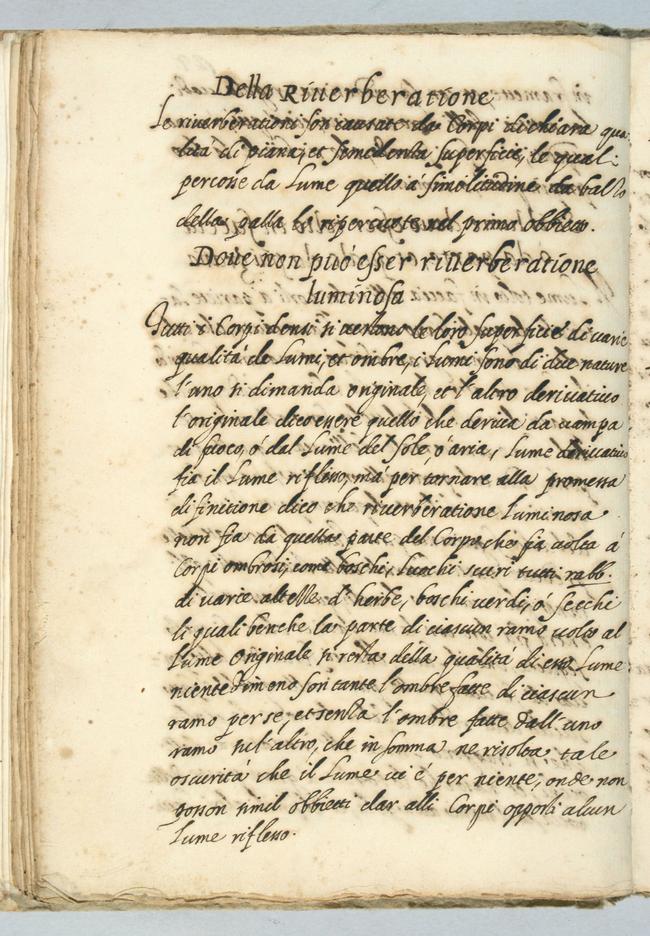 Della Riuerberatione
Le riuerberationi son causate da Corpi di chiara qua:
lità di piana, et semidensa superficie, le qual:
percosse da Lume quello á similitudine da balzo
della palla lo ripercuote nel primo obbietto.
Doue non può esser riuerberatione
luminosa
Tutti i Corpi densi si uestano le loro superficie di uarie
qualità de Lumi, et ombre, i Lumi sono di due nature
l'uno si dimanda originale, et l'altro deriuatiuo
l'originale dico essere quello che deriua da uampa
di fuoco, ó dal Lume del sole, ó aria, Lume deriuatiuo
fia il Lume riflesso, má per tornare alla promessa
difinitione dico che riuerberatione Luminosa
non fia da quella parte del Corpo che fia uolta á
Corpi ombrosi, come boschi, luochi scuri tutti rabb.
di uarie altezze d'herbe, boschi uerdi, ó secchi
li quali benche la parte di ciascun ramo uolta al
Lume Originale si uesta della qualitá di esso Lume
niente dimeno son tante l'ombre fatte di ciascun
ramo per se, et senza l'ombre fatte dall'uno
ramo sul'altro, che in somma ne risolua tale
oscuritá che il Lume ui é per niente, onde non
posson simil obbietti dar alli Corpi opposti alcun
Lume riflesso.